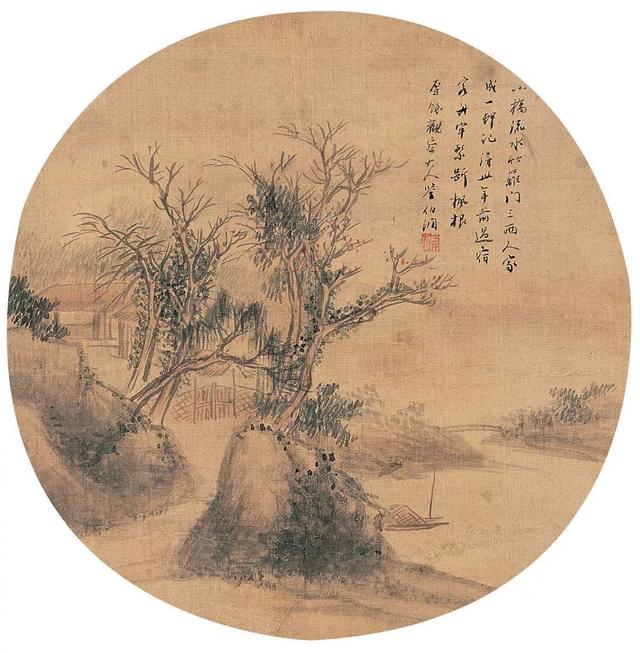 小橋流水竹籬門三兩人家
成一邨記得卅年前過宿
客舟牢繫斷楓根
觀察大人鑒伯滔